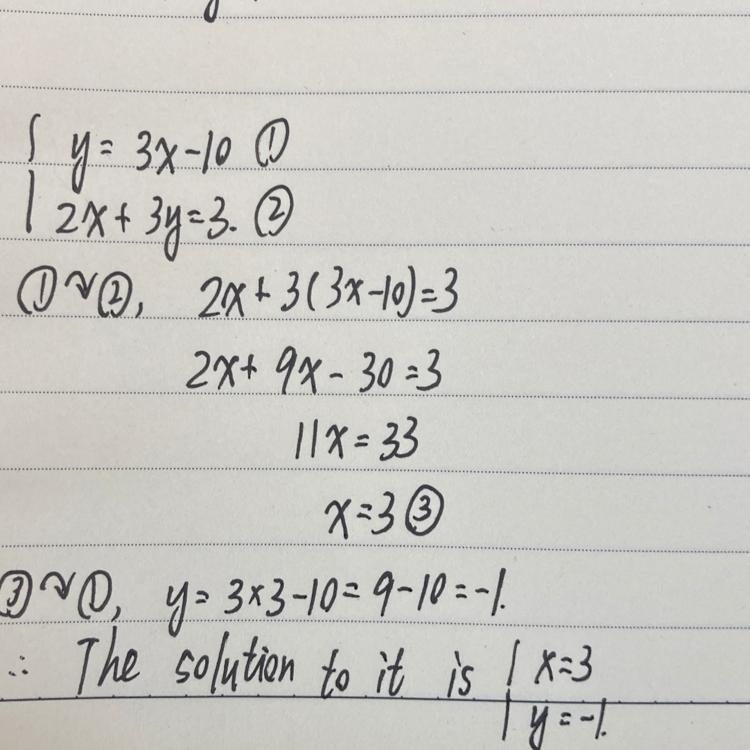 { y = 3x-10 ①
2x + 3y = 3. ②
①↷②, 2x + 3(3x-10) = 3
2x + 9x - 30 = 3
11x = 33
x = 3 ③
③↷①, y = 3×3-10 = 9-10 = -1.
∴ The solution to it is { x = 3
y = -1.